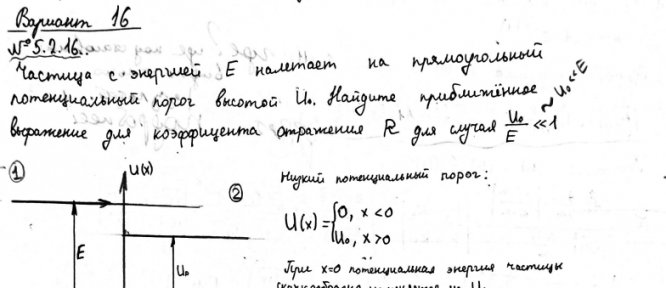 Вариант 16
№5.2.16.
Частица с энергией E налетает на прямоугольный
потенциальный порог высотой U₀. Найдите приближённое
выражение для коэффицента отражения R для случая U₀/E ≪1 ~ U₀≪E
① U(x) ② Низкий потенциальный порог:
U(x) = {0, x<0
U₀, x>0
E U₀ При x=0 потенциальная энергия частицы